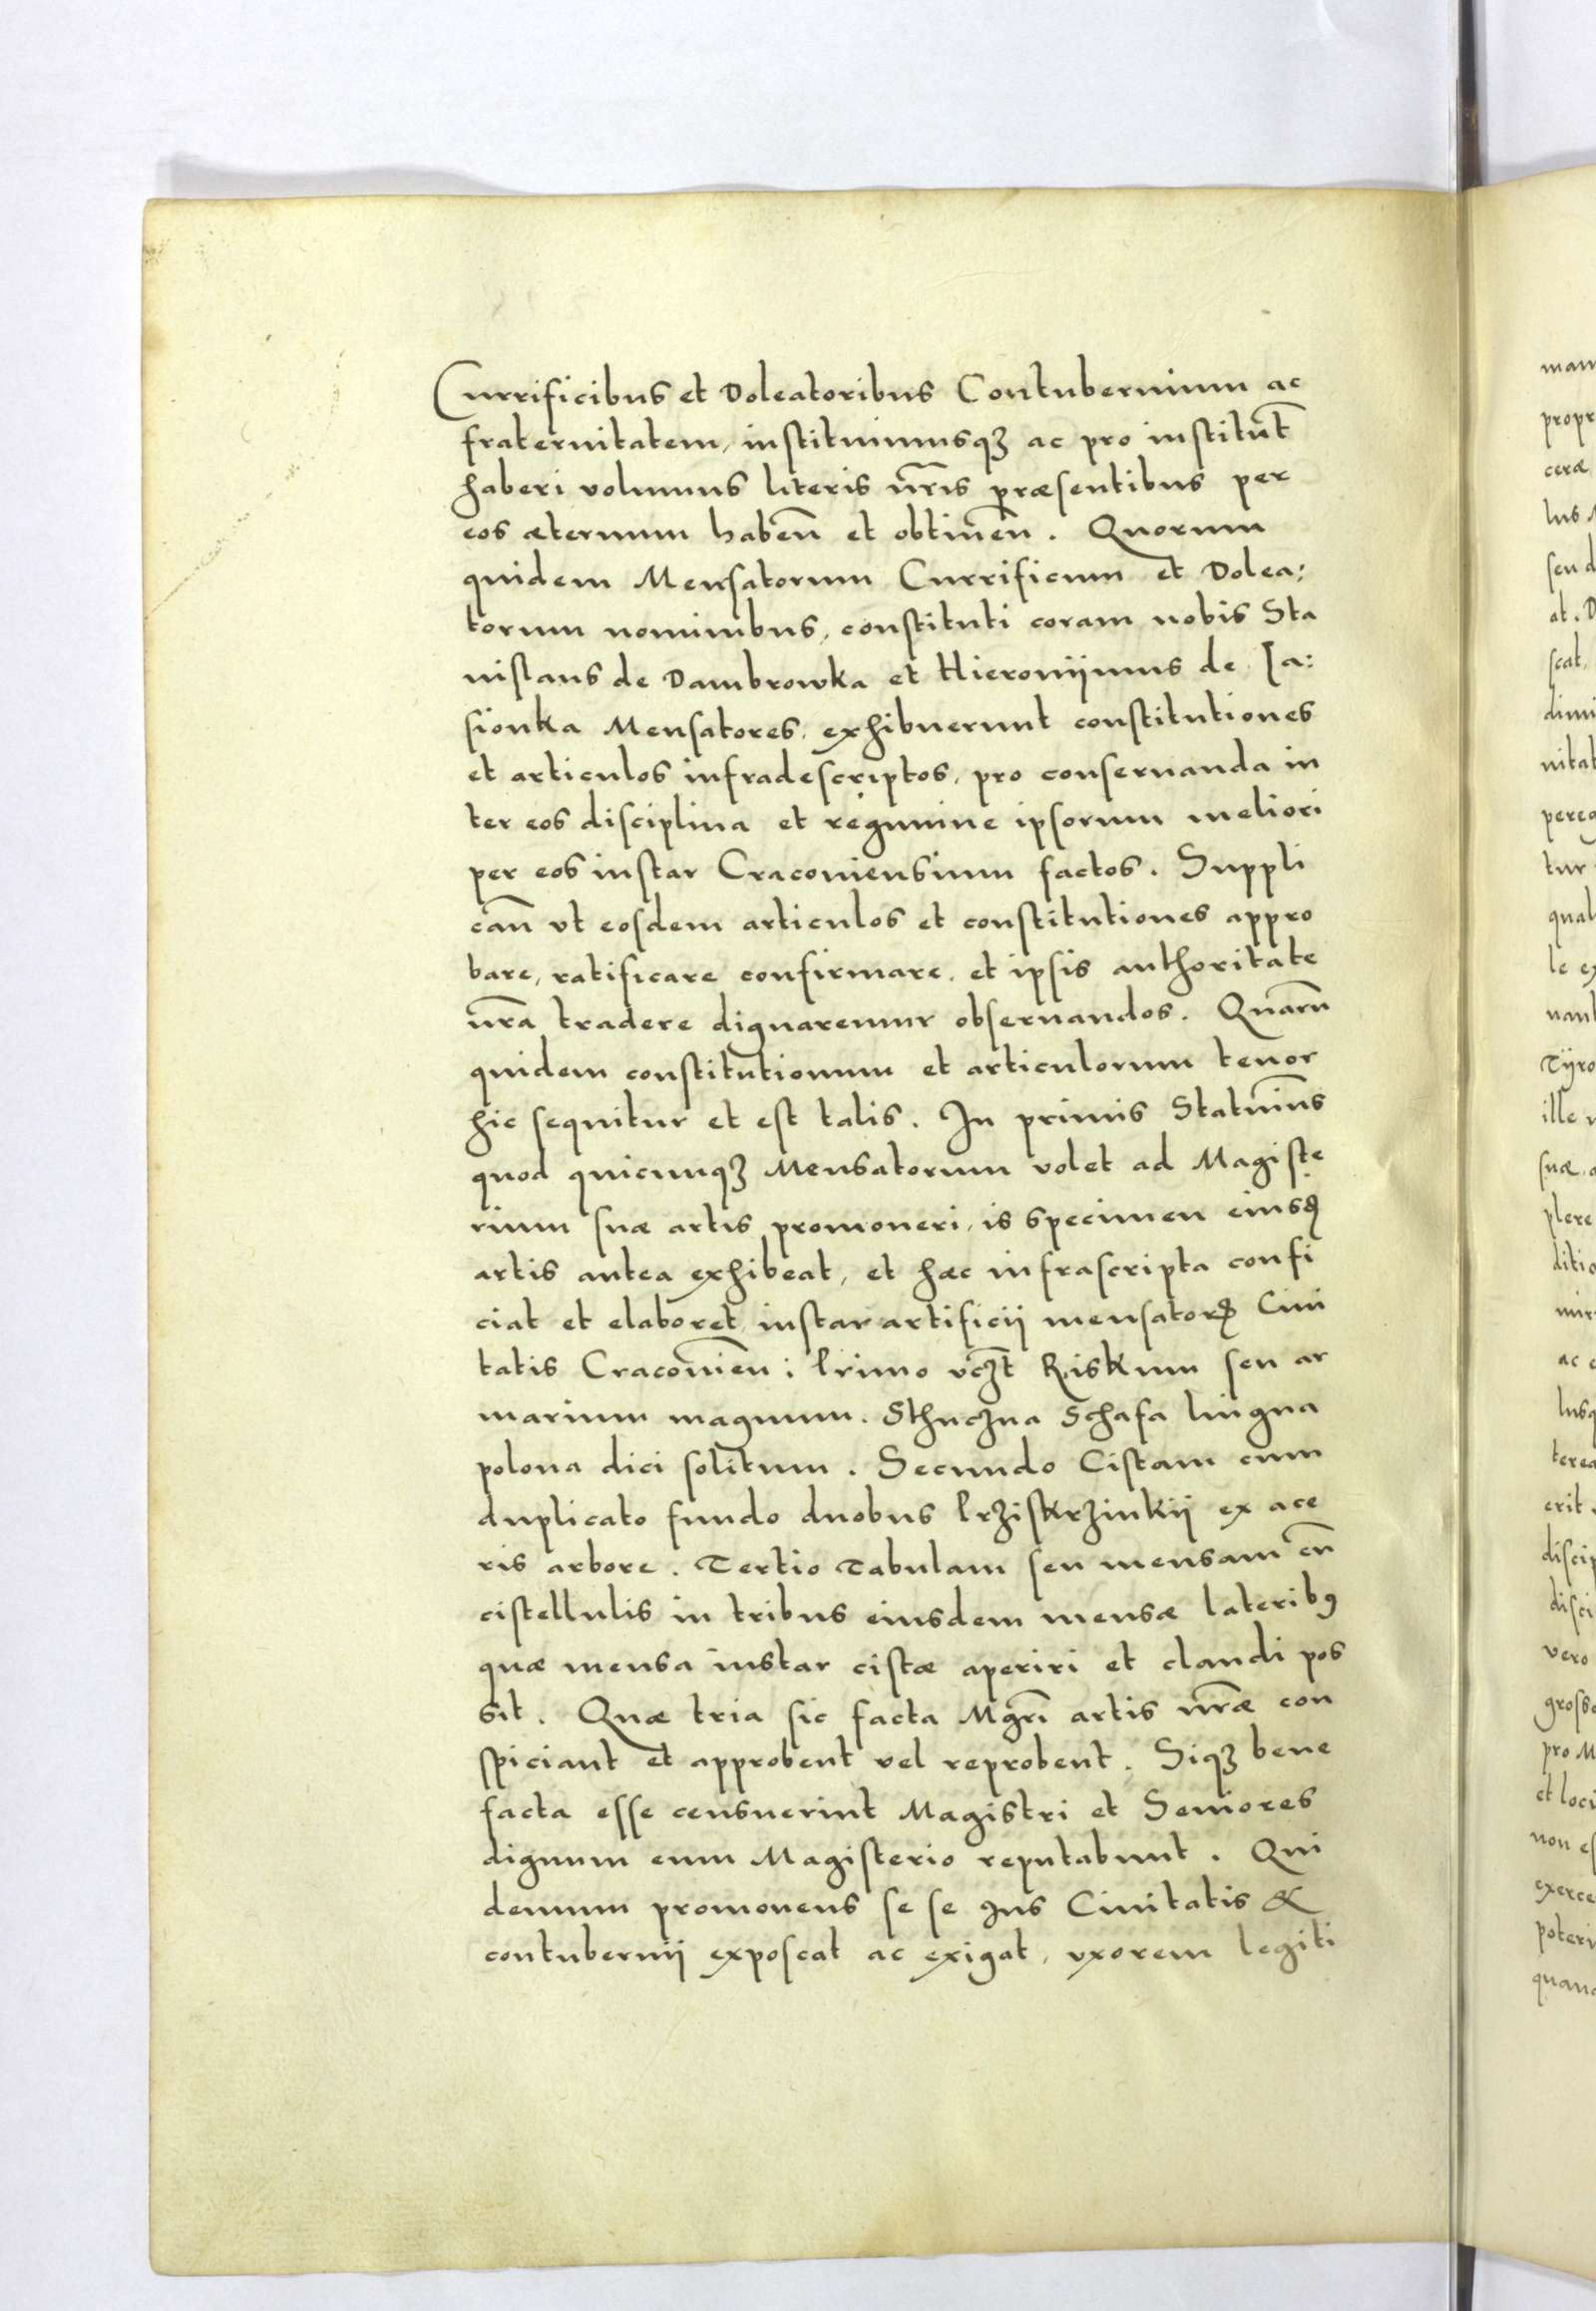 Currificibus et Doleatoribus Contubernium ac
fraternitatem, instituimusqꝫ ac pro institut̄
haberi volumus literis nr̄is præsentibus per
eos æternum haben̄ et obtinen̄. Quorum
quidem Mensatorum Currificum et Dolea:
torum nominibus, constituti coram nobis Sta
nislaus de Dambrowka et Hieronijmus de Ia:
sionka Mensatores, exhibuerunt constitutiones
et articulos infradescriptos, pro conseruanda in
ter eos disciplina et regimine ipsorum meliori
per eos instar Cracouiensium factos. Suppli
can̄ vt eosdem articulos et constitutiones appro
bare, ratificare confirmare, et ipsis authoritate
nr̄a tradere dignaremur obseruandos. Quarn̄
quidem constitutionum et articulorum tenor
hic sequitur et est talis. In primis Statuim̄s
quod quicunqꝫ Mensatorum volet ad Magiste
rium suæ artis promoueri, is specimen eiusꝺ
artis antea exhibeat, et hæc infrascripta confi
ciat et elaboret instar artificij mensatorꝝ Ciui
tatis Cracouien̄: Primo vcꝫt Riskum seu ar
marium magnum. Sthuczna Schafa lingua
polona dici solitum. Secundo Cistam cum
duplicato fundo duobus Prziskrzinkij ex ace
ris arbore. Tertio Tabulam seu mensam cn̄
cistellulis in tribus eiusdem mensæ lateribꝰ
quæ mensa instar cistæ aperiri et claudi pos
sit. Quæ tria sic facta Mgr̄i artis nr̄æ con
spiciant et approbent vel reprobent. Siqꝫ bene
facta esse censuerint Magistri et Seniores
dignum eum Magisterio reputabunt. Qui
demum promouens se se Ius Ciuitatis &
contubernij exposcat ac exigat, vxorem legiti